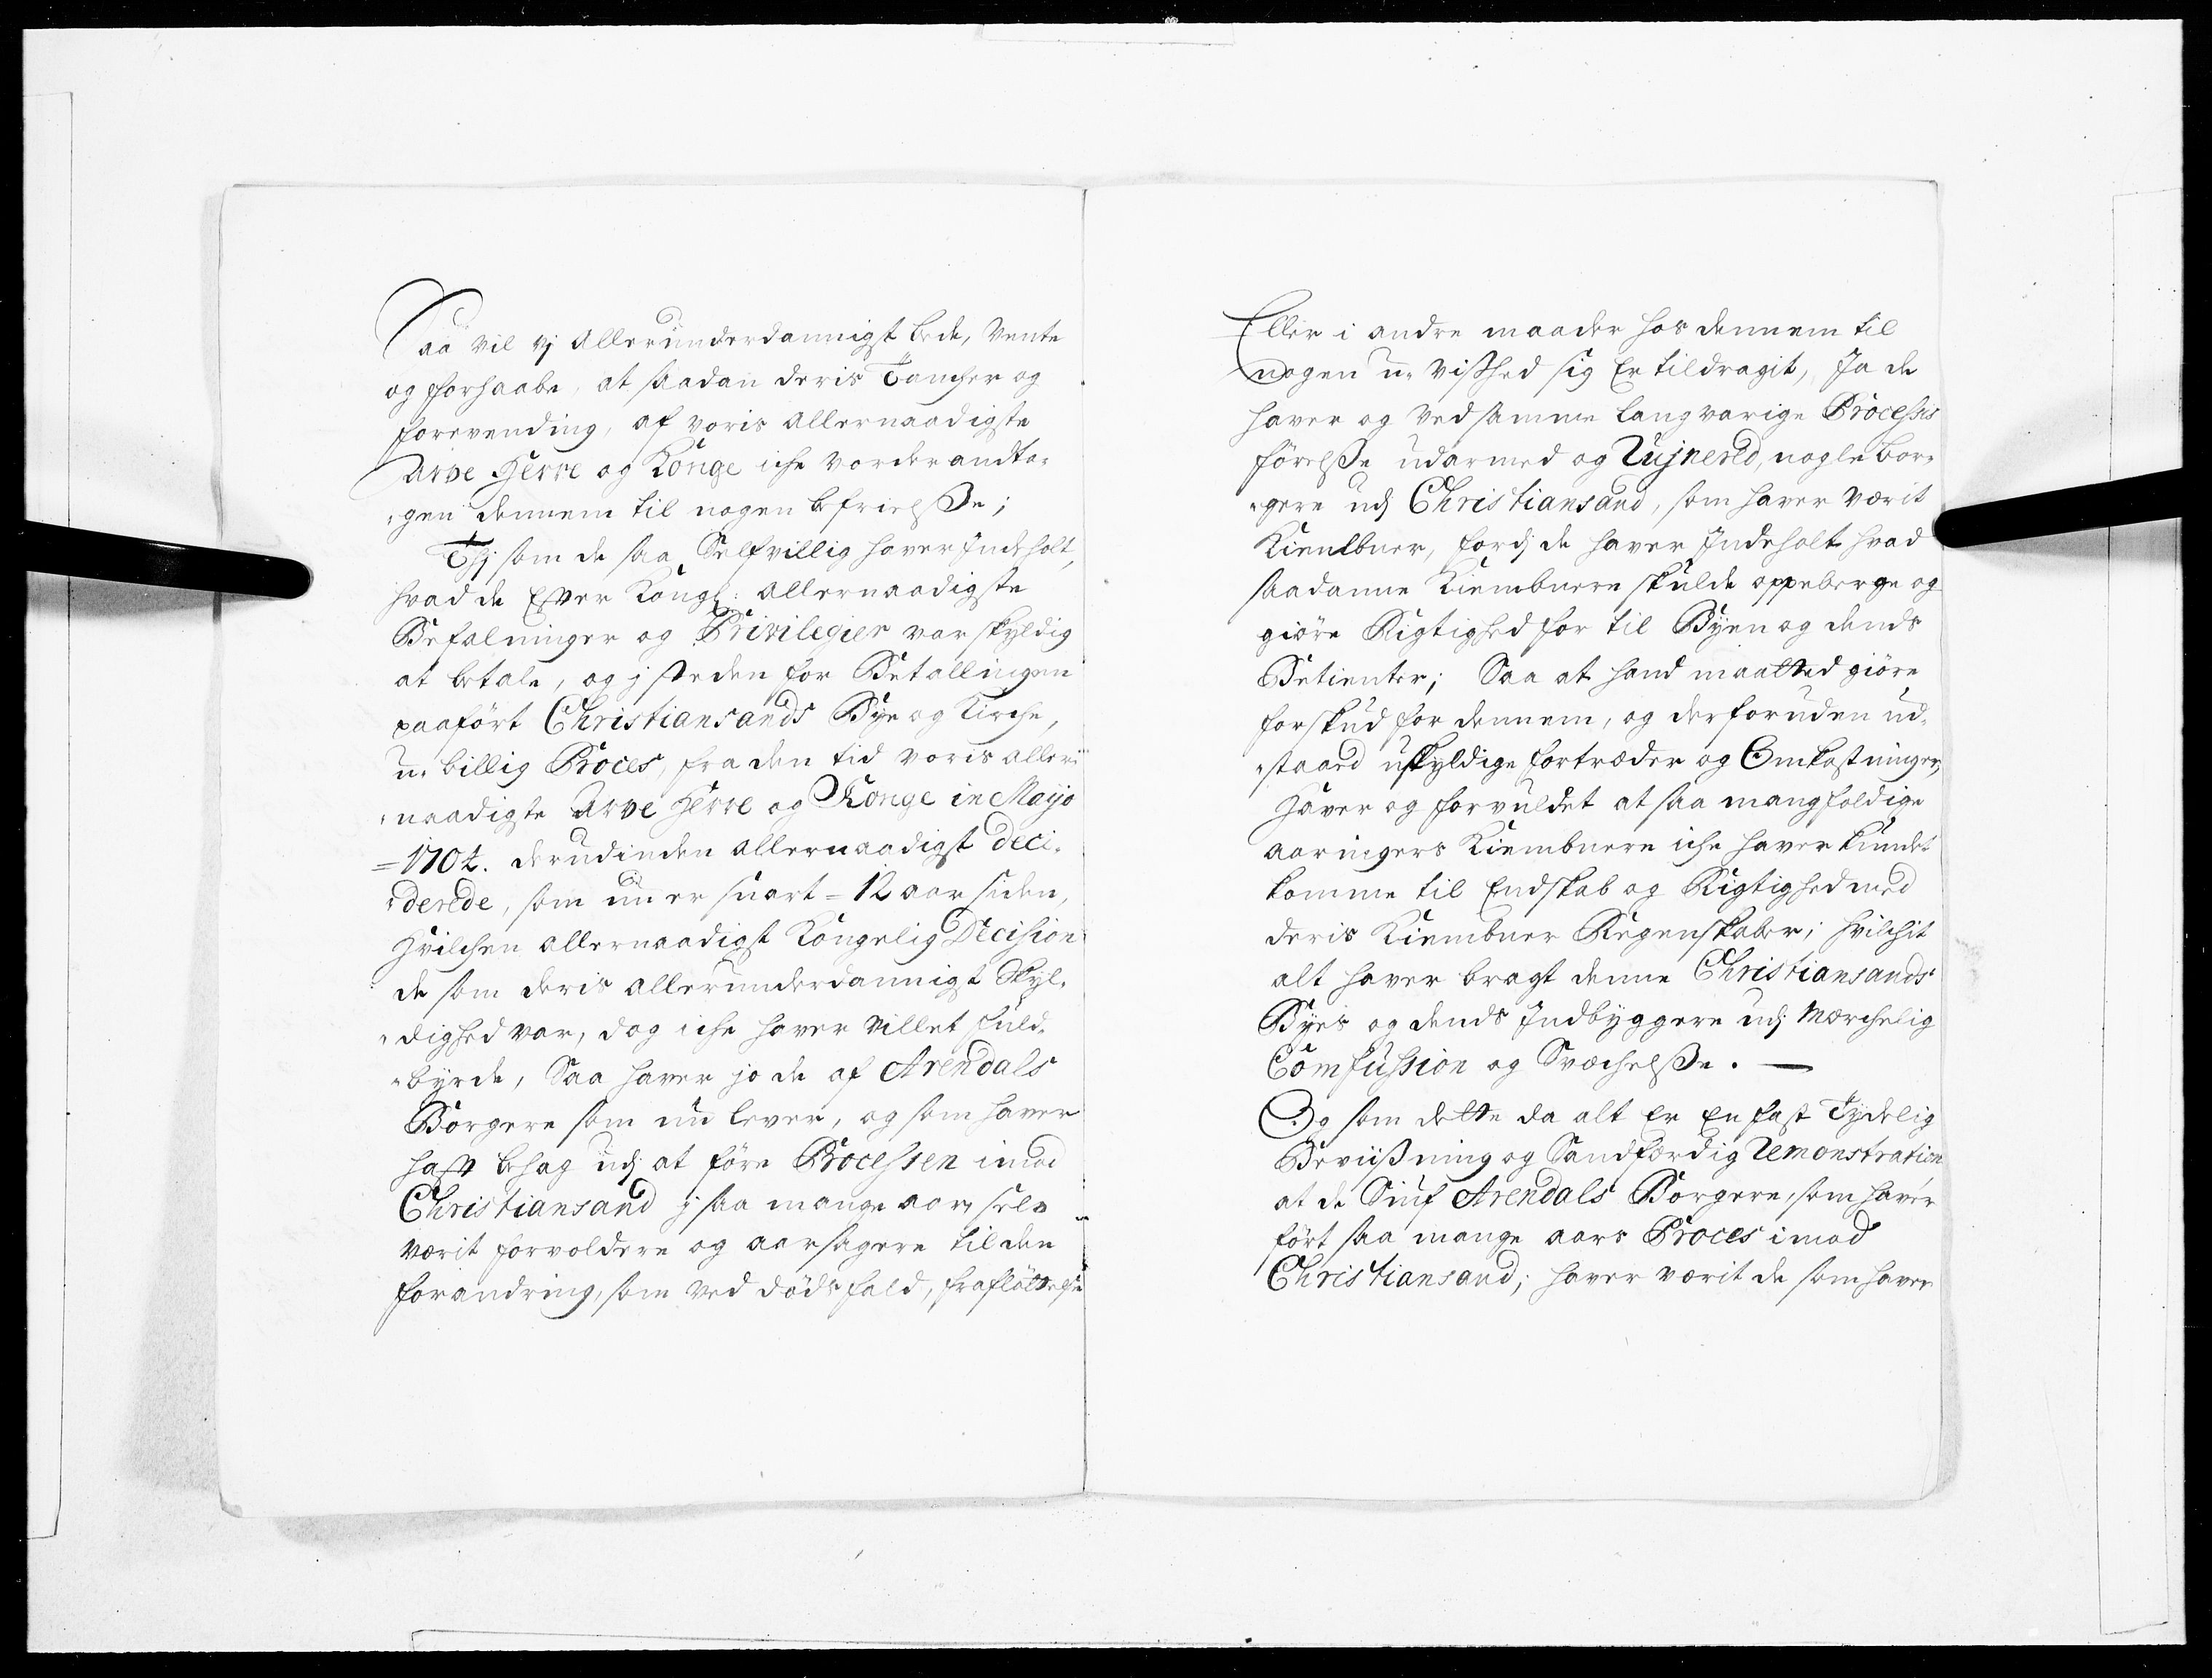 Saa vil vj Allerunderdannigst bede, vente
og forhaabe, at saadan deris Tancher og
forevending, af voris allernaadigste
Arve Herre og Konge iche vorder andta-
-gen dennem til nogen befrielsße;
Thj som de saa Selfvillig haver Indeholt,
hvad de Efter Kongl: allernaadigste
Befalninger og Privilegier var skyldig
at betale, og j steden for Betallingen
paaført Christiansands Bye og Kirche,
u-billig Proces, fra den tid voris aller-
-naadigste Arve Herre og Konge in Mayo
=1704. derudinden allernaadigst deci-
-derede, som nu er snart = 12 aar siden,
Hvilchen allernaadigst Kongelig Decision
de som deris allerunderdannigst Skyl-
-dighed var, dog iche haver villet fuld-
-byrde, Saa haver jo de af Arendals
Borgere som nu lever, og som haver
haft behag udj at føre Processen imod
Christiansand j saa mange aar, selv
værit forvoldere og aarsagere til den
forandring, som ved døds fald, frafløttelse
Eller i andre maader hos dennem til
nogen u-vißhed sig Er tildragit, Ja de
haver og ved samme langvarige Processis
førelsße udarmed og Rujnered, nogle bor-
-gere udj Christiansand, som haver værit
Kiembner, fordj de haver Indeholt hvad
saadanne Kiembnere skulde oppeberge og
giøre Rigtighed for til Byen og dends
Betienter; Saa at hand maatted giøre
forskud for dennem, og derforuden ud-
-staaed uskyldige fortræder og Omkostninger,
Haver og forvuldet at saa mangfoldige
aaringers Kiembnere iche haver kundet
komme til Endskab og Rigtighed med
deris Kiembner Regenskaber; hvilchit
alt haver bragt denne Christiansands
Byes og dends Indbyggere udj Mærchelig
Comfussion og Svæchelsße. —
Og som dette da alt er En fast Tydelig
Beviißning og Sandfærdig Remonstration
at de Siuf Arendals Borgere, som haver
ført saa mange aars Proces imod
Christiansand; haver værit de som haver